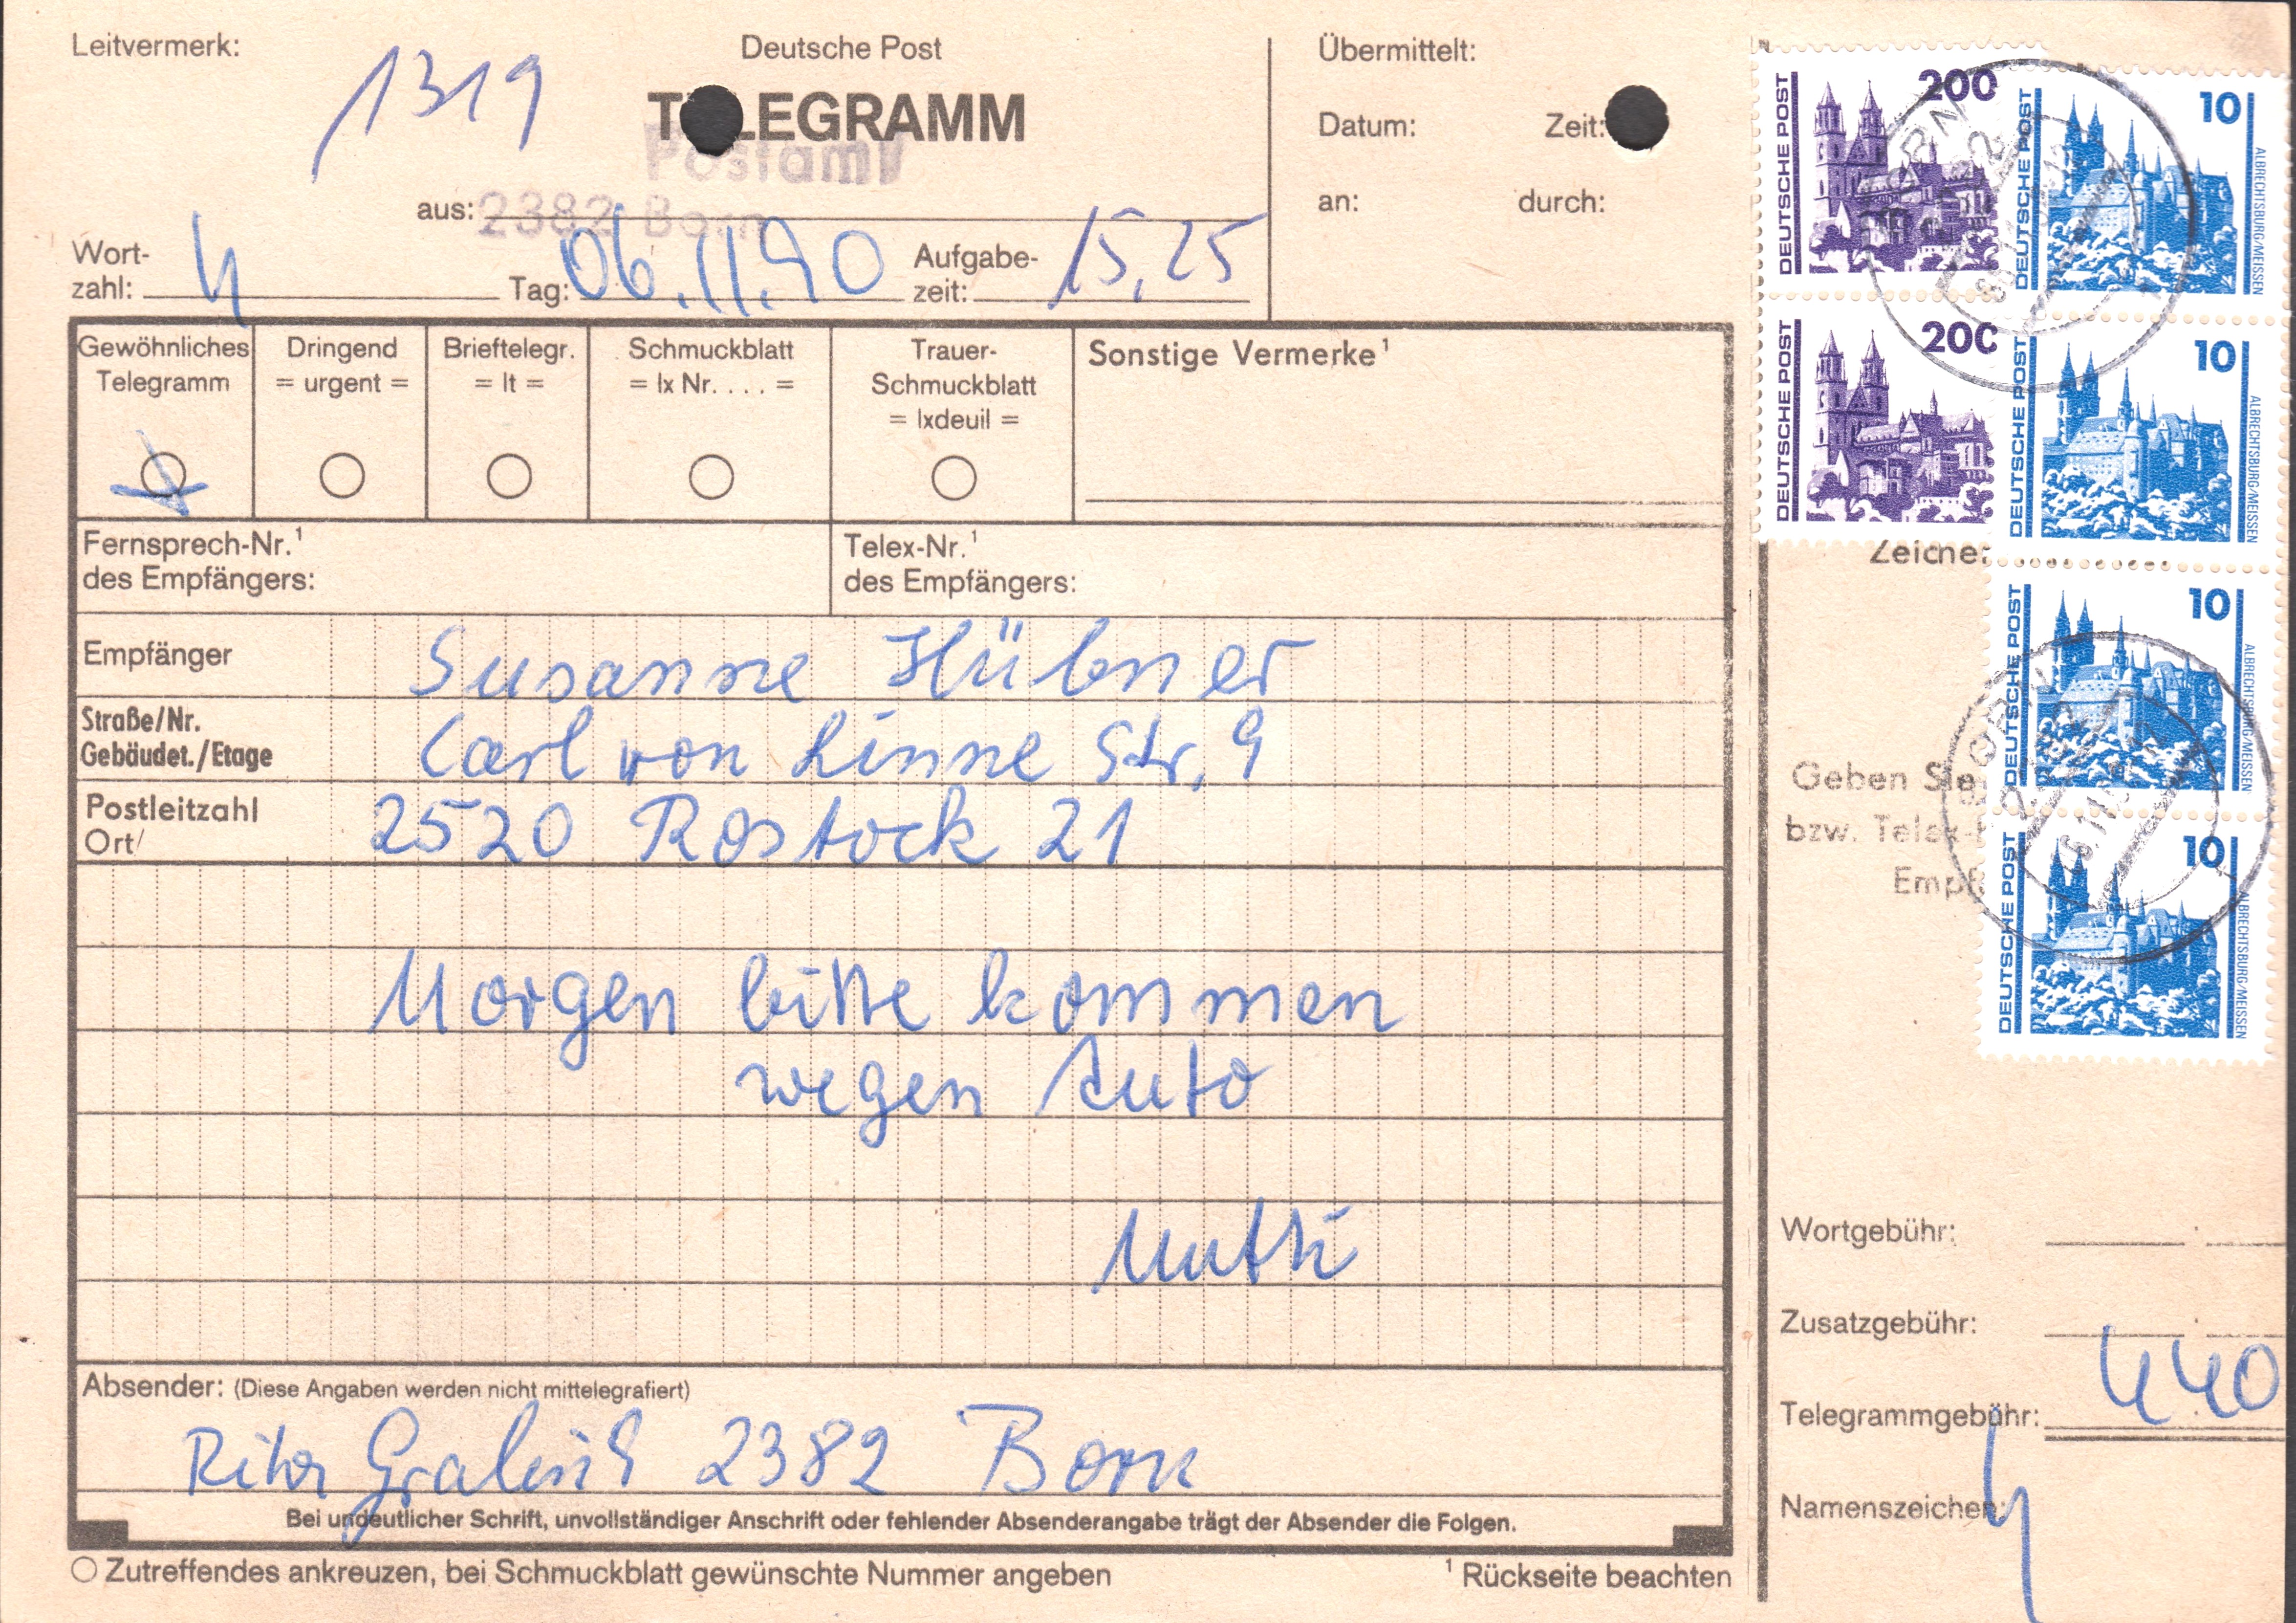 Leitvermerk:
1319
Deutsche Post
TELEGRAMM
Postamt
aus: 2382 Born
Wort-
zahl: 4
Tag: 06.11.90
Aufgabe-
zeit: 15,25
Übermittelt:
Datum: Zeit:
an: durch:
Gewöhnliches
Telegramm
Dringend
= urgent =
Brieftelegr.
= lt =
Schmuckblatt
= lx Nr. . . . =
Trauer-
Schmuckblatt
= lxdeuil =
Sonstige Vermerke¹
Fernsprech-Nr.¹
des Empfängers:
Telex-Nr.¹
des Empfängers:
Empfänger Susanne Hübner
Straße/Nr.
Gebäudet./Etage
Carl von Linne Str. 9
Postleitzahl
Ort/
2520 Rostock 21
Morgen bitte kommen
wegen Auto
Mutti
Absender: (Diese Angaben werden nicht mittelegrafiert)
Rita 2382 Born
Bei undeutlicher Schrift, unvollständiger Anschrift oder fehlender Absenderangabe trägt der Absender die Folgen.
Zutreffendes ankreuzen, bei Schmuckblatt gewünschte Nummer angeben
¹ Rückseite beachten
DEUTSCHE POST 200
DEUTSCHE POST 10 ALBRECHTSBURG/MEISSEN
DEUTSCHE POST 200
DEUTSCHE POST 10 ALBRECHTSBURG/MEISSEN
DEUTSCHE POST 10 ALBRECHTSBURG/MEISSEN
DEUTSCHE POST 10 ALBRECHTSBURG/MEISSEN
Geben Sie
bzw. Telex-
Empf
Wortgebühr:
Zusatzgebühr:
Telegrammgebühr: 440
Namenszeichen: